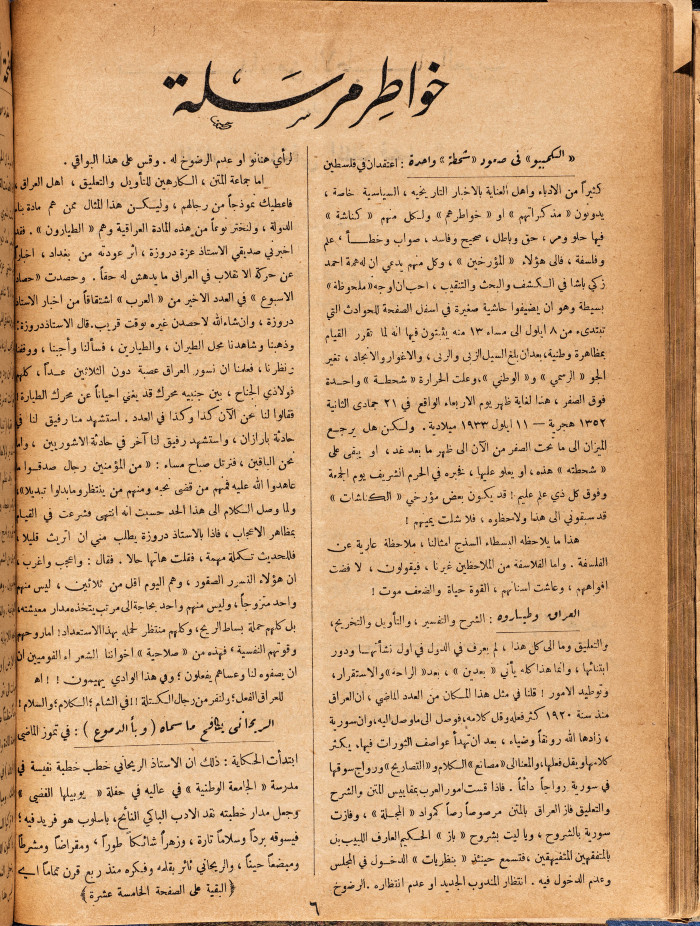 خواطر مرسلة
« الكمبيو » في صعود « شحطة » واحدة : اعتقد ان في فلسطين
كثيراً من الادباء واهل العناية بالاخبار التاريخيه ، السياسية خاصة ،
يدونون « مذكراتهم » او « خواطرهم » ولكل منهم « كناشة »
فيها حلو ومر ، حق وباطل ، صحيح وفاسد ، صواب وخطأ ، علم
وفلسفة ، فالى هؤلاء « المؤرخين » ، وكل منهم يدعي ان له همة احمد
زكي باشا في الكشف والبحث والتنقيب ، احب ان اوجه « ملحوظة »
بسيطة وهو ان يضيفوا حاشية صغيرة في اسفل الصفحة للحوادث التي
تبتدىء من ٨ ايلول الى مساء ١٣ منه يثبتون فيها انه لما تقرر القيام
بمظاهرة وطنية، بعد ان بلغ السيل الزبى والربى ، والاغوار والانجاد ، تغير
الجو « الرسمي » و« الوطني »، وعلت الحرارة « شحطة » واحدة
فوق الصفر ، هذا لغاية ظهر يوم الاربعاء الواقع في ٢١ جمادى الثانية
١٣٥٢ هجرية — ١١ ايلول ١٩٣٣ ميلادية . ولكن هل يرجع
الميزان الى ما تحت الصفر من الآن الى ظهر ما بعد غد ، او يبقى على
« شحطته » هذه ، او يعلو عليها ، فخبره في الحرم الشريف يوم الجمعة
وفوق كل ذي علم عليم ! قد يكون بعض مؤرخي « الكناشات »
قد سبقوني الى هذا ولاحظوه ، فلا شلت يمينهم !
هذا ما يلاحظه البسطاء السذج امثالنا ، ملاحظة عارية عن
الفلسفة . واما الفلاسفة من الملاحظين غيرنا ، فيقولون ، لا فضت
افواههم ، وعاشت اسنانهم ، القوة حياة والضعف موت !
العراق وطياروه : الشرح والتفسير ، والتأويل والتخريج،
والتعليق وما الى كل هذا ، لم يعرف في الدول في اول نشأتها ودور
ابتنائها ، وانما هذا كله يأتي « بعدين » ، بعد الراحة والاستقرار،
وتوطيد الامور ! قلنا في مثل هذا المكان من العدد الماضي ، ان العراق
منذ سنة ١٩٢٠ كثر فعله وقل كلامه، فوصل الى ما وصل اليه، وان سورية
، زادها الله رونقاً وضياء ، بعد ان تهدأ عواصف الثورات فيها، يكثر
كلامها ويقل فعلها، والمعنا الى « مصانع » الكلام و« التصاريح » ورواج سوقها
في سورية رواجاً دائماً . فاذا قست امور العرب بمقاييس المتن والشرح
والتعليق فاز العراق بالمتن مرصوصاً رصاً كمواد « المجلة » ، وفازت
سورية بالشروح ، ويا ليت بشروح « باز » الحكيم العارف اللبيب بل
بالمتفقهين المتفيهقين ، فتسمع حينئذ « بنظريات » الدخول في المجلس
وعدم الدخول فيه . انتظار المندوب الجديد او عدم انتظاره . الرضوخ
لرأي هنانو او عدم الرضوخ له . وقس على هذا البواقي .
اما جماعة المتن ، الكارهين للتأويل والتعليق ، اهل العراق ،
فاعطيك نموذجاً من رجالهم ، وليكن هذا المثال ممن هم مادة بناء
الدولة ، ولنختر نوعاً من هذه المادة العراقية وهم « الطيارون » . فقد
اخبرني صديقي الاستاذ عزة دروزة ، اثر عودته من بغداد ، اخباراً
عن حركة الانقلاب في العراق ما يدهش له حقاً . وحصدت « حصاد
الاسبوع » في العدد الاخير من « العرب » اشتقاقاً من اخبار الاستاذ
دروزة ، وان شاء الله لاحصدن غيره بوقت قريب. قال الاستاذ دروزة:
وذهبنا وشاهدنا محل الطيران ، والطيارين ، فسألنا وأجبنا ، ووقفنا
تنظرنا ، فعلمنا ان نسور العراق عصبة دون الثلاثين عداً ، كلهم
فولاذي الجناح ، بين جنبيه محرك قد يغني احياناً عن محرك الطيارة !
فقالوا لنا نحن الآن كذا وكذا في العدد . استشهد منا رفيق لنا في
حادثة بارازان ، واستشهد رفيق لنا آخر في حادثة الاشوريين ، واما
نحن الباقين ، فنرتل صباح مساء : « من المؤمنين رجال صدقوا ما
عاهدوا الله عليه فمنهم من قضى نحبه ومنهم من ينتظر وما بدلوا تبديلا »،
ولما وصل الكلام الى هذا الحد حسبت انه انتهى فشرعت في القيام
بمظاهر الاعجاب ، فاذا بالاستاذ دروزة يطلب مني ان اتريث قليلا ،
فللحديث تكملة مهمة ، فقلت هاتها حالا . فقال : واعجب واغرب ،
ان هؤلاء النسور الصقور ، وهم اليوم اقل من ثلاثين ، ليس منهم
واحد متزوجاً ، وليس منهم واحد بحاجة الى مرتب يتخذه مدار معيشته،
بل كلهم حملة بساط الريح، وكلهم منتظر لحمله بهذا الاستعداد! اما روحهم
وقوتهم النفسية ، فهذه من « صلاحية » اخواننا الشعراء القوميين ان
ان يصفوه لنا وعساهم يفعلون ؛ وفي هذا الوادي يهيمون ! ! اه
للعراق الفعل؛ ولنفر من رجال الكستلة !! في الشام ؛ الكلام؛ والسلام !
الريحاني يكافح ما سماه ( وبأ الدموع ) : في تموز الماضي
ابتدأت الحكاية : ذلك ان الاستاذ الريحاني خطب خطبة نفيسة في
مدرسة « الجامعة الوطنية » في عاليه في حفلة « يوبيلها الفضي »
وجعل مدار خطبته نقد الادب الباكي النائح، باسلوب هو فريد فيه ؛
فيسوقه برداً وسلاماً تارة ، وزهراً شائكاً طوراً ، ومقراضاً ومشرطاً
ومبضعاً حيناً ، والريحاني ثائر بقلمه وفكره منذ ربع قرن تماماً اي
﴿ البقية على الصفحة الخامسة عشرة ﴾
٦